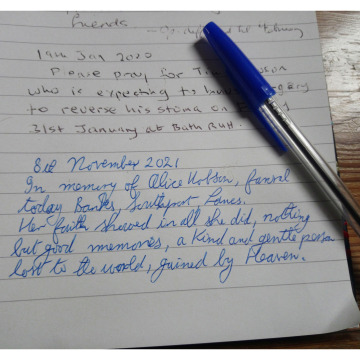 friends
19th Jan 2020
Please pray for
who is expecting to have
to reverse his stoma on
31st January at Bath RUH.
8th November 2021
In memory of Alice Hobson, funeral
today Banks, Southport Lancs.
Her faith showed in all she did, nothing
but good memories, a kind and gentle person
lost to the world, gained by Heaven.